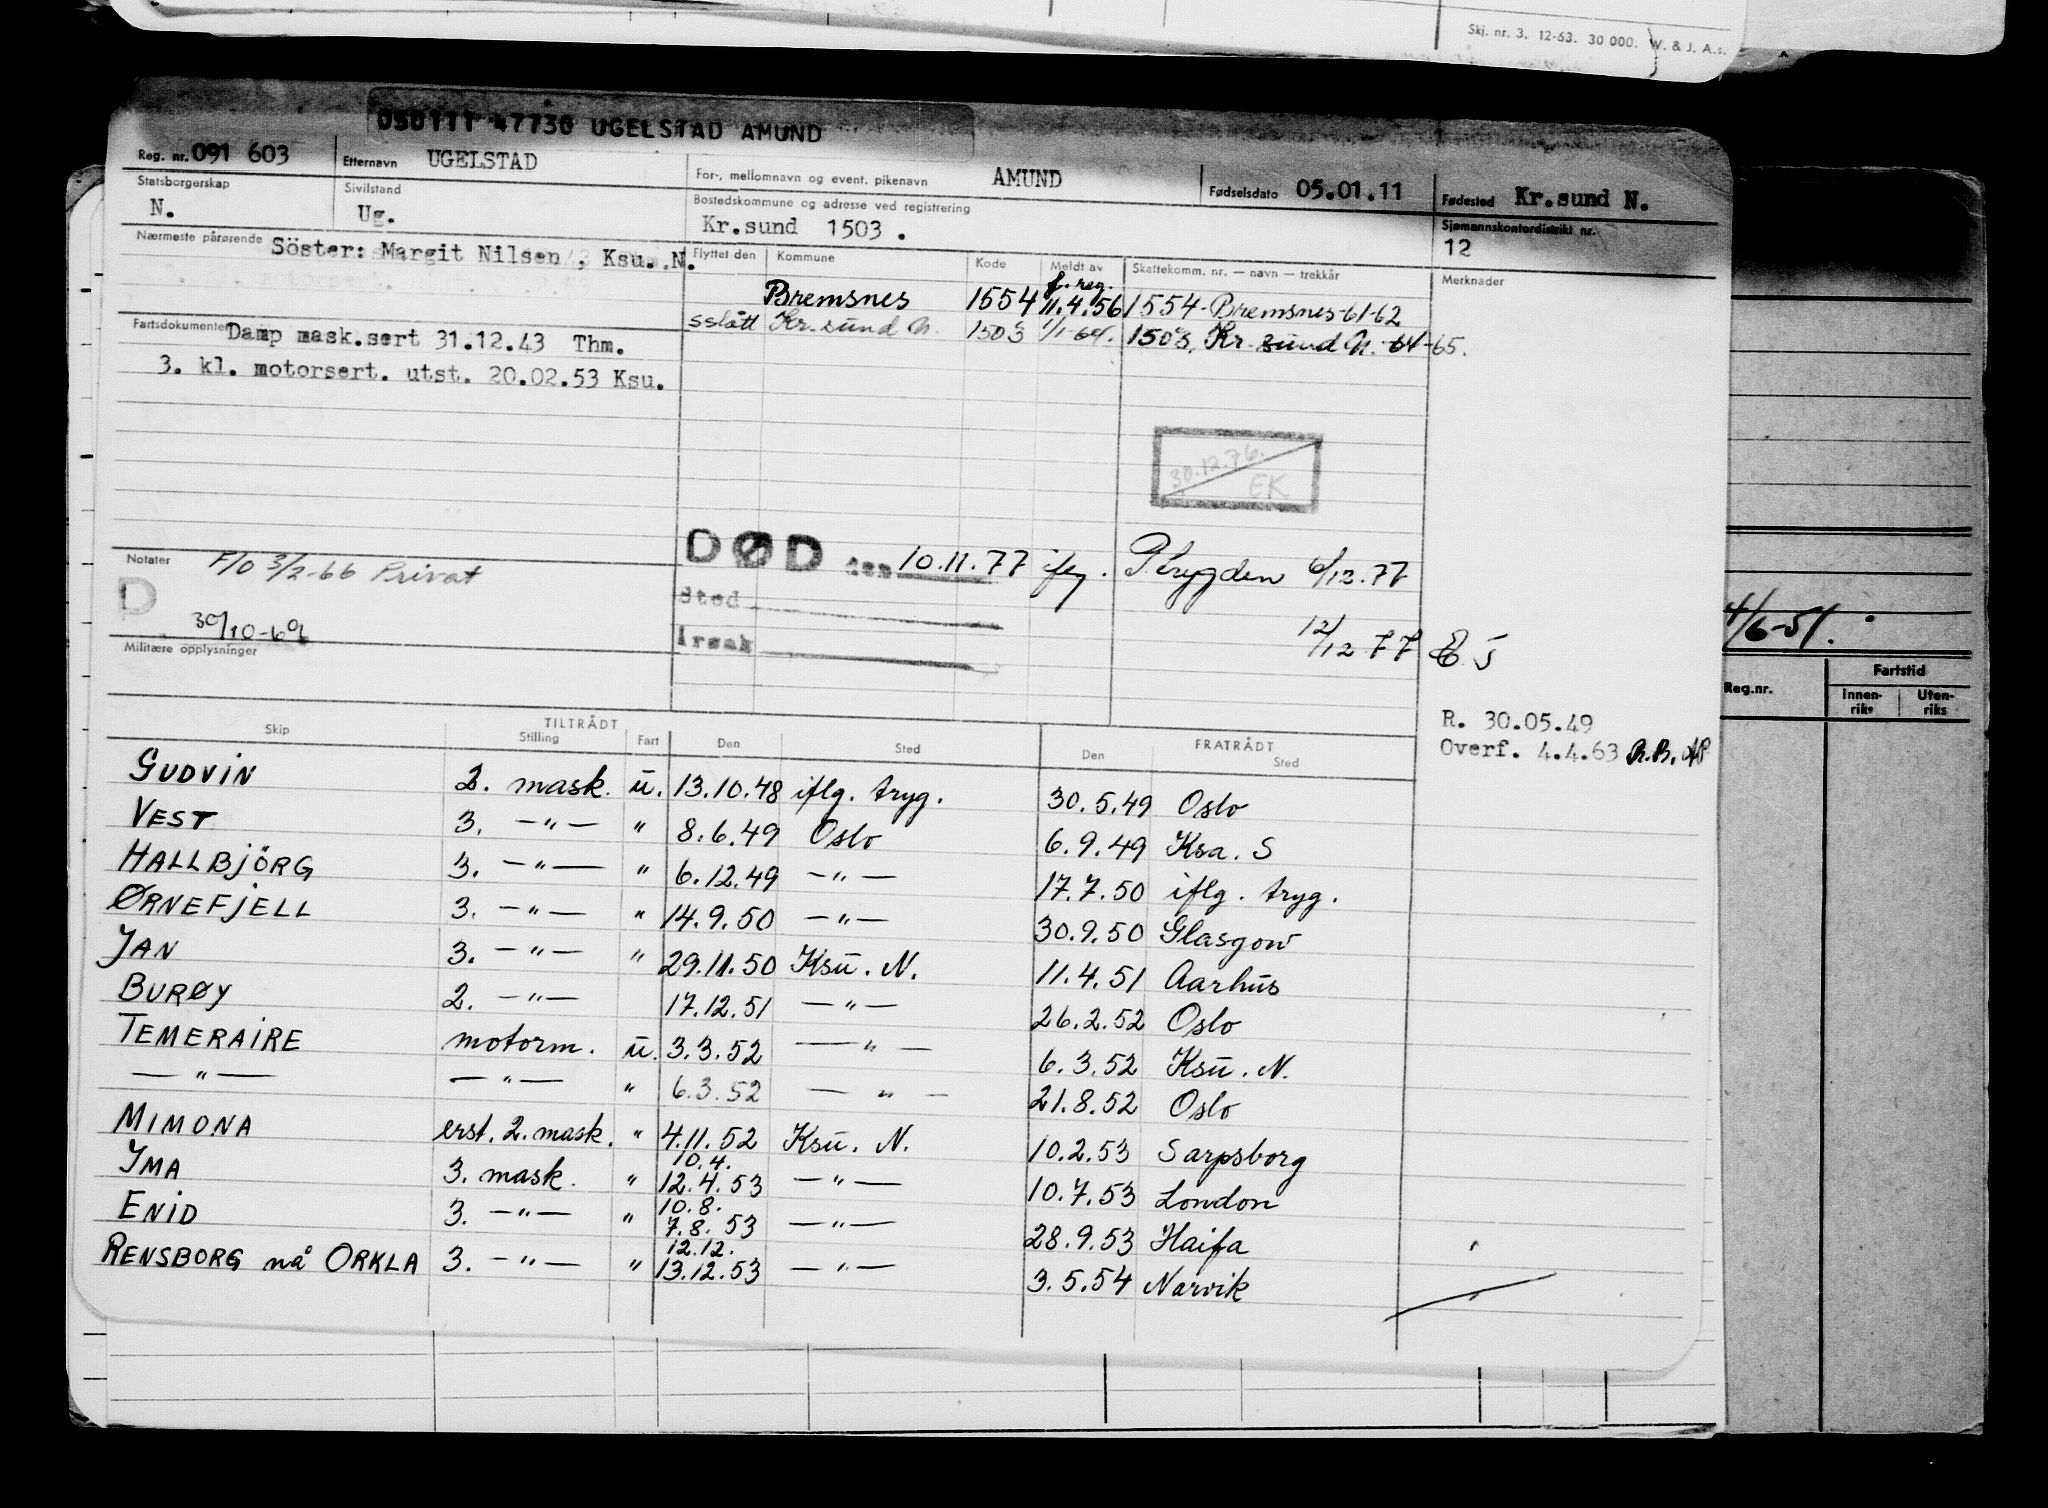 Skj. nr. 3. 12-63. 30 000. W. & J. A.s.
050111 47730 UGELSTAD AMUND
Reg. nr. 091 603 Etternavn UGELSTAD For-, mellomnavn og event. pikenavn AMUND Fødselsdato 05.01.11 Fødested Kr.sund N.
Statsborgerskap N. Sivilstand Ug. Bostedskommune og adresse ved registrering Kr.sund 1503 . Sjømannskontordistrikt nr. 12
Nærmeste pårørende Söster: Margit Nilsen , Ksu. N. Flyttet den Kommune Kode Meldt av Skattekomm. nr. — navn — trekkår Merknader
f. reg.
Bremsnes 1554 11.4.56 1554-Bremsnes-61-62
sslått Kr.sund N. 1503 1/1-64. 1503, Kr.sund N.-64-65.
Fartsdokumenter Damp mask.sert 31.12.43 Thm.
3. kl. motorsert. utst. 20.02.53 Ksu.
30.12.76.
EK
Notater F/O 3/2-66 Privat
D
30/10-69
DØD den 10.11.77 iflg. P.trygden 6/12.77
Sted
Årsak
12/12 77 E J
Militære opplysninger
4/6-51.
Reg.nr. Fartstid
Innen-riks Uten-riks
R. 30.05.49
Overf. 4.4.63 R.B. AP
Skip TILTRÅDT Stilling Fart Den Sted FRATRÅDT Den Sted
GUDVIN 2. mask. u. 13.10.48 iflg. tryg. 30.5.49 Oslo
VEST 3. —"— " 8.6.49 Oslo 6.9.49 Ksa. S
HALLBJÖRG 3. —"— " 6.12.49 —"— 17.7.50 iflg. tryg.
ØRNEFJELL 3. —"— " 14.9.50 —"— 30.9.50 Glasgow
JAN 3. —"— " 29.11.50 Ksu. N. 11.4.51 Aarhus
BURØY 2. —"— 17.12.51 —"— 26.2.52 Oslo
TEMERAIRE motorm. u. 3.3.52 —"— 6.3.52 Ksu. N.
—"— —"— " 6.3.52 —"— 21.8.52 Oslo
MIMONA erst. 2. mask. " 4.11.52 Ksu. N. 10.2.53 Sarpsborg
10.4.
IMA 3. mask. " 12.4.53 —"— 10.7.53 London
10.8.
ENID 3. —"— " 7.8.53 —"— 28.9.53 Haifa
12.12.
RENSBORG nå ORKLA 3. —"— " 13.12.53 —"— 3.5.54 Narvik